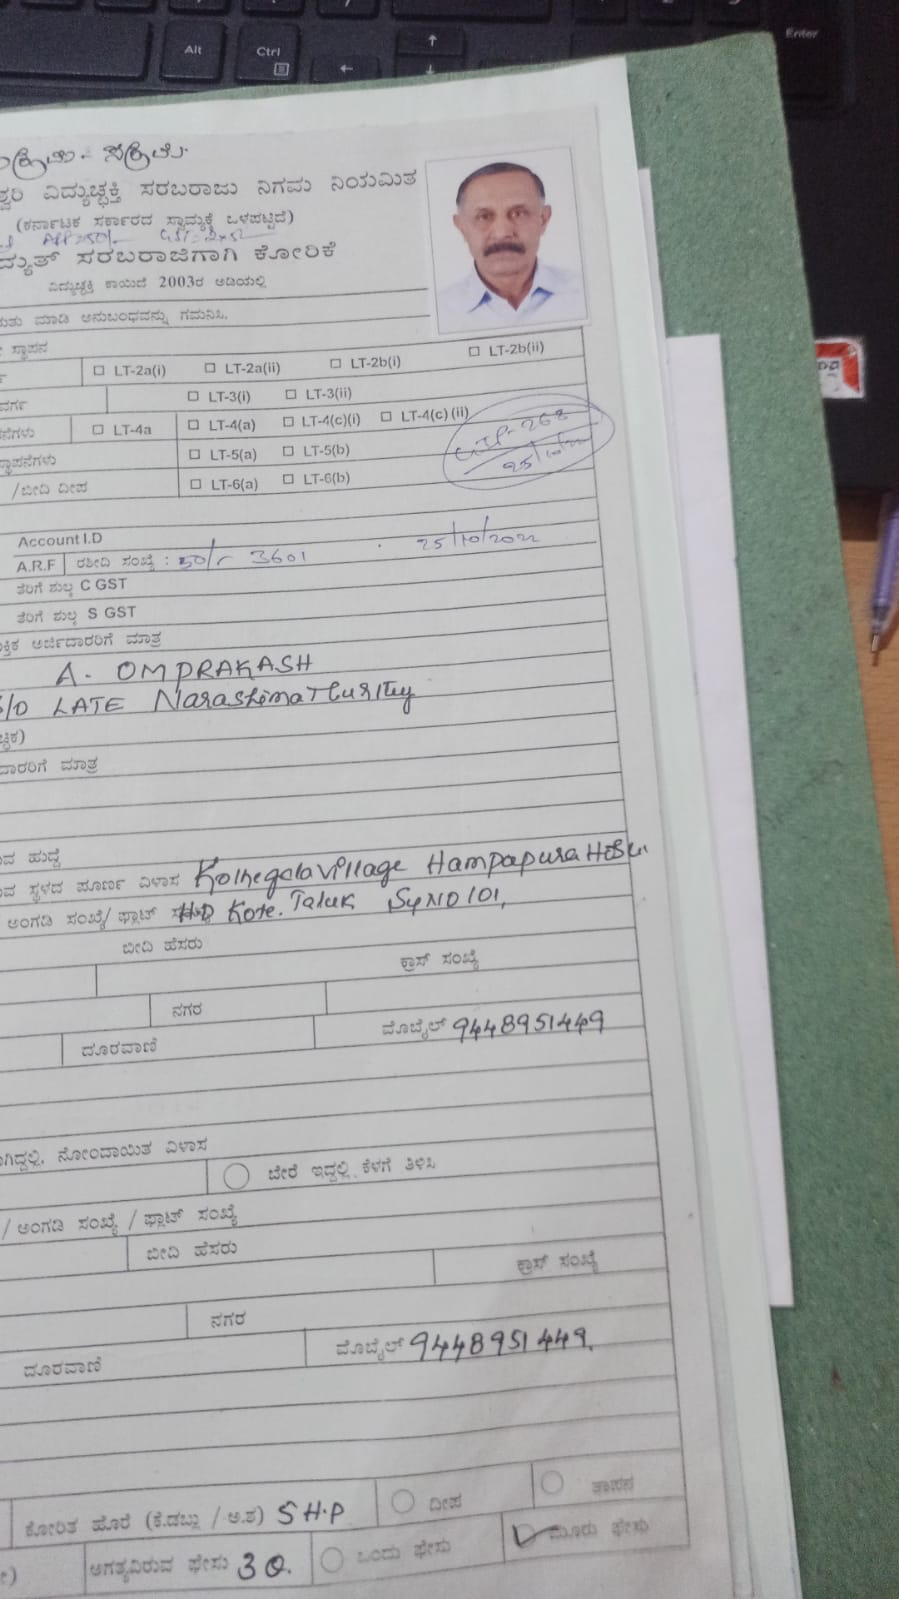 Alt
Ctrl
Enter
ವಿದ್ಯುಚ್ಛಕ್ತಿ ಸರಬರಾಜು ನಿಗಮ ನಿಯಮಿತ
(ಕರ್ನಾಟಕ ಸರ್ಕಾರದ ಸ್ವಾಮ್ಯಕ್ಕೆ ಒಳಪಟ್ಟಿದೆ)
ಸರಬರಾಜಿಗಾಗಿ ಕೋರಿಕೆ
ವಿದ್ಯುಚ್ಛಕ್ತಿ ಕಾಯಿದೆ 2003ರ ಅಡಿಯಲ್ಲಿ
ಮಾಡಿ ಅನುಬಂಧವನ್ನು ಗಮನಿಸಿ.
ಸ್ಥಾಪನ
LT-2a(i) LT-2a(ii) LT-2b(i) LT-2b(ii)
LT-3(i) LT-3(ii)
LT-4a LT-4(a) LT-4(c)(i) LT-4(c)(ii)
LT-5(a) LT-5(b)
/ಬೀದಿ ದೀಪ LT-6(a) LT-6(b)
25/10/22
Account I.D
A.R.F ರಶೀದಿ ಸಂಖ್ಯೆ : 50/r 3601 25/10/2022
ತೆರಿಗೆ ಶುಲ್ಕ C GST
ತೆರಿಗೆ ಶುಲ್ಕ S GST
ಅರ್ಜಿದಾರರಿಗೆ ಮಾತ್ರ
A. OMPRAKASH
S/O LATE
ಮಾತ್ರ
ಹುದ್ದೆ
ಸ್ಥಳದ ಪೂರ್ಣ ವಿಳಾಸ Kolhegala Village Hampapura
ಅಂಗಡಿ ಸಂಖ್ಯೆ/ ಫ್ಲಾಟ್ HD Kote. Taluk SyNO 101,
ಬೀದಿ ಹೆಸರು
ಕ್ರಾಸ್ ಸಂಖ್ಯೆ
ನಗರ
ದೂರವಾಣಿ ಮೊಬೈಲ್ 9448951449
ನೋಂದಾಯಿತ ವಿಳಾಸ
ಬೇರೆ ಇದ್ದಲ್ಲಿ ಕೆಳಗೆ ತಿಳಿಸಿ
/ ಅಂಗಡಿ ಸಂಖ್ಯೆ / ಫ್ಲಾಟ್ ಸಂಖ್ಯೆ
ಬೀದಿ ಹೆಸರು
ಕ್ರಾಸ್ ಸಂಖ್ಯೆ
ನಗರ
ದೂರವಾಣಿ ಮೊಬೈಲ್ 9448951449.
ಕೋರಿತ ಹೊರೆ (ಕೆ.ಡಬ್ಲು / ಅ.ಶ) 5 H.P ದೀಪ ತಾಪನ
ಅಗತ್ಯವಿರುವ ಫೇಸು ಒಂದು ಫೇಸು ಮೂರು ಫೇಸು